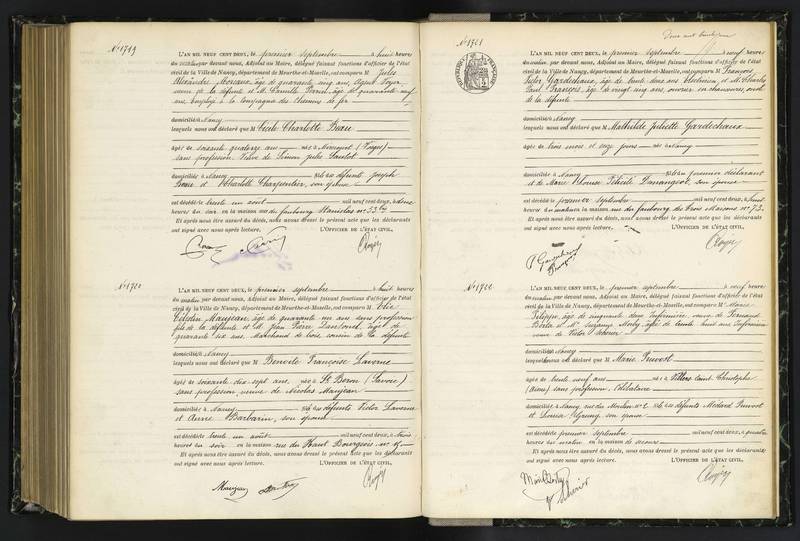 N°1719
L'AN MIL NEUF CENT DEUX, le premier septembre à huit heures
du matin par devant nous, Adjoint au Maire, délégué faisant fonctions d'officier de l'état
civil de la Ville de Nancy, département de Meurthe-et-Moselle, ont comparu M Jules
Alexandre Moreaux, âgé de quarante cinq ans, Agent Voyer,
neveu de la défunte et M. Camille Perrin âgé de quarante neuf
ans employé à la Compagnie des Chemins de fer
domiciliés à Nancy
lesquels nous ont déclaré que M Cécile Charlotte Beau
âgée de soixante quatorze ans née à Mirecourt (Vosges)
sans profession, Veuve de Simon Jules
domiciliée à Nancy fille de défunts Joseph
Beau et Charlotte Charpentier, son épouse
est décédée trente un août mil neuf cent deux, à
heures du soir en la maison rue du faubourg Stanislas n° 53 bis
Et après nous être assuré du décès, nous avons dressé le présent acte que les déclarants
ont signé avec nous après lecture. L'OFFICIER DE L'ÉTAT CIVIL,
N°1720
L'AN MIL NEUF CENT DEUX, le premier septembre à huit heures
du matin par devant nous, Adjoint au Maire, délégué faisant fonctions d'officier de l'état
civil de la Ville de Nancy, département de Meurthe-et-Moselle, ont comparu M
Maujean âgé de quarante un ans sans profession
fils de la défunte et M. Jean Pierre âgé de
quarante six ans, Marchand de bois, cousin de la défunte
domiciliés à Nancy
lesquels nous ont déclaré que M Benoite Françoise Laverne
âgée de soixante dix sept ans, née à St Béron (Savoie)
sans profession, veuve de Nicolas Maujean
domiciliée à Nancy fille de défunts Victor Laverne
et Anne Barbarin, son épouse
est décédée trente un août mil neuf cent deux, à trois
heures du soir en la maison rue du Haut Bourgeois n°
Et après nous être assuré du décès, nous avons dressé le présent acte que les déclarants
ont signé avec nous après lecture. L'OFFICIER DE L'ÉTAT CIVIL,
Maujean
N°1721
L'AN MIL NEUF CENT DEUX, le premier septembre à neuf heures
du matin par devant nous, Adjoint au Maire, délégué faisant fonctions d'officier de l'état
civil de la Ville de Nancy, département de Meurthe-et-Moselle, ont comparu M François
Victor Gardechaux, âgé de trente deux ans électricien, et M. Charles
Paul François, âgé de vingt cinq ans, ouvrier en chaussures, oncle
de la défunte
domiciliés à Nancy
lesquels nous ont déclaré que M Mathilde Juliette Gardechaux
âgée de trois mois et onze jours née à Nancy
domiciliée à Nancy fille du premier déclarant
et de Marie Louise Félicité son épouse
est décédée premier septembre mil neuf cent deux, à huit
heures du matin en la maison rue du faubourg des Trois Maisons n° 73
Et après nous être assuré du décès, nous avons dressé le présent acte que les déclarants
ont signé avec nous après lecture. L'OFFICIER DE L'ÉTAT CIVIL,
N°1722
L'AN MIL NEUF CENT DEUX, le premier septembre à neuf heures
du matin par devant nous, Adjoint au Maire, délégué faisant fonctions d'officier de l'état
civil de la Ville de Nancy, département de Meurthe-et-Moselle, ont comparu Me Marie
âgée de cinquante deux infirmière, veuve de Fernand
et Me Suzanne âgée de trente huit ans infirmière
veuve de Victor
domiciliés à Nancy
lesquels nous ont déclaré que M Marie Pruvost
âgée de trente neuf ans née à Villers Saint Christophe
(Aisne) sans profession, Célibataire
domiciliée à Nancy rue du Moulin n° 2 fille de défunts Médard Pruvost
et Louise son épouse
est décédée premier septembre mil neuf cent deux, à quatre
heures du matin en la maison de secours
Et après nous être assuré du décès, nous avons dressé le présent acte que les déclarants
ont signé avec nous après lecture. L'OFFICIER DE L'ÉTAT CIVIL,